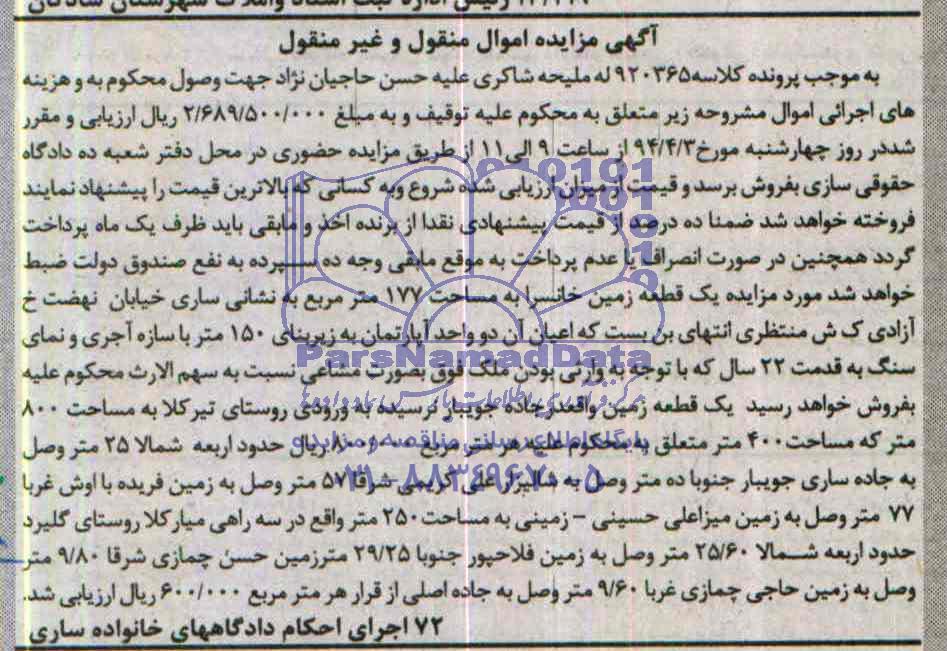 آگهی مزایده اموال منقول و غیر منقول
به موجب پرونده کلاسه۹۲۰۳۶۵ له ملیحه شاکری علیه حسن حاجیان نژاد جهت وصول محکوم به و هزینه
های اجرائی اموال مشروحه زیر متعلق به محکوم علیه توقیف و به مبلغ ۲/۶۸۹/۵۰۰/۰۰۰ ریال ارزیابی و مقرر
شددر روز چهارشنبه مورخ۹۴/۴/۳ از ساعت ۹ الی۱۱ از طریق مزایده حضوری در محل دفتر شعبه ده دادگاه
حقوقی سازی بفروش برسد و قیمت از میزان ارزیابی شده شروع وبه کسانی که بالاترین قیمت را پیشنهاد نمایند
فروخته خواهد شد ضمنا ده درصد از قیمت پیشنهادی نقدا از برنده اخذ و مابقی باید ظرف یک ماه پرداخت
گردد همچنین در صورت انصراف یا عدم پرداخت به موقع مابقی وجه ده سپرده به نفع صندوق دولت ضبط
خواهد شد مورد مزایده یک قطعه زمین خانسرا به مساحت ۱۷۷ متر مربع به نشانی ساری خیابان نهضت خ
آزادی ک ش منتظری انتهای بن بست که اعیان آن دو واحد آپارتمان به زیربنای ۱۵۰ متر با سازه آجری و نمای
ParsNamadData
سنگ به قدمت ۲۲ سال که با توجه به وارثی بودن ملک فوق بصورت مشاعی نسبت به سهم الارث محکوم علیه
بفروش خواهد رسید یک قطعه زمین واقعدرجاده جویبار نرسیده به ورودی روستای تیرکلا به مساحت ۸۰۰
متر که مساحت۴۰۰ متر متعلق به محکوم علیه هر متر مربع ریال حدود اربعه شمالا ۲۵ متر وصل
به جاده ساری جویبار جنوبا ده متر وصل به شالیزار علی کریمی شرقا ۵۷ متر وصل به زمین فریده با اوش غربا
۰۲۱-۸۸۳۴۹۶۷۰-۵
۷۷ متر وصل به زمین میزاعلی حسینی - زمینی به مساحت۲۵۰ متر واقع در سه راهی میارکلا روستای گلیرد
حدود اربعه شمالا ۲۵/۶۰ متر وصل به زمین فلاحپور جنوبا ۲۹/۲۵ مترزمین حسن چمازی شرقا ۹/۸۰ متر
وصل به زمین حاجی چمازی غربا ۹/۶۰ متر وصل به جاده اصلی از قرار هر متر مربع ۶۰۰/۰۰۰ ریال ارزیابی شد.
۷۲ اجرای احکام دادگاههای خانواده ساری